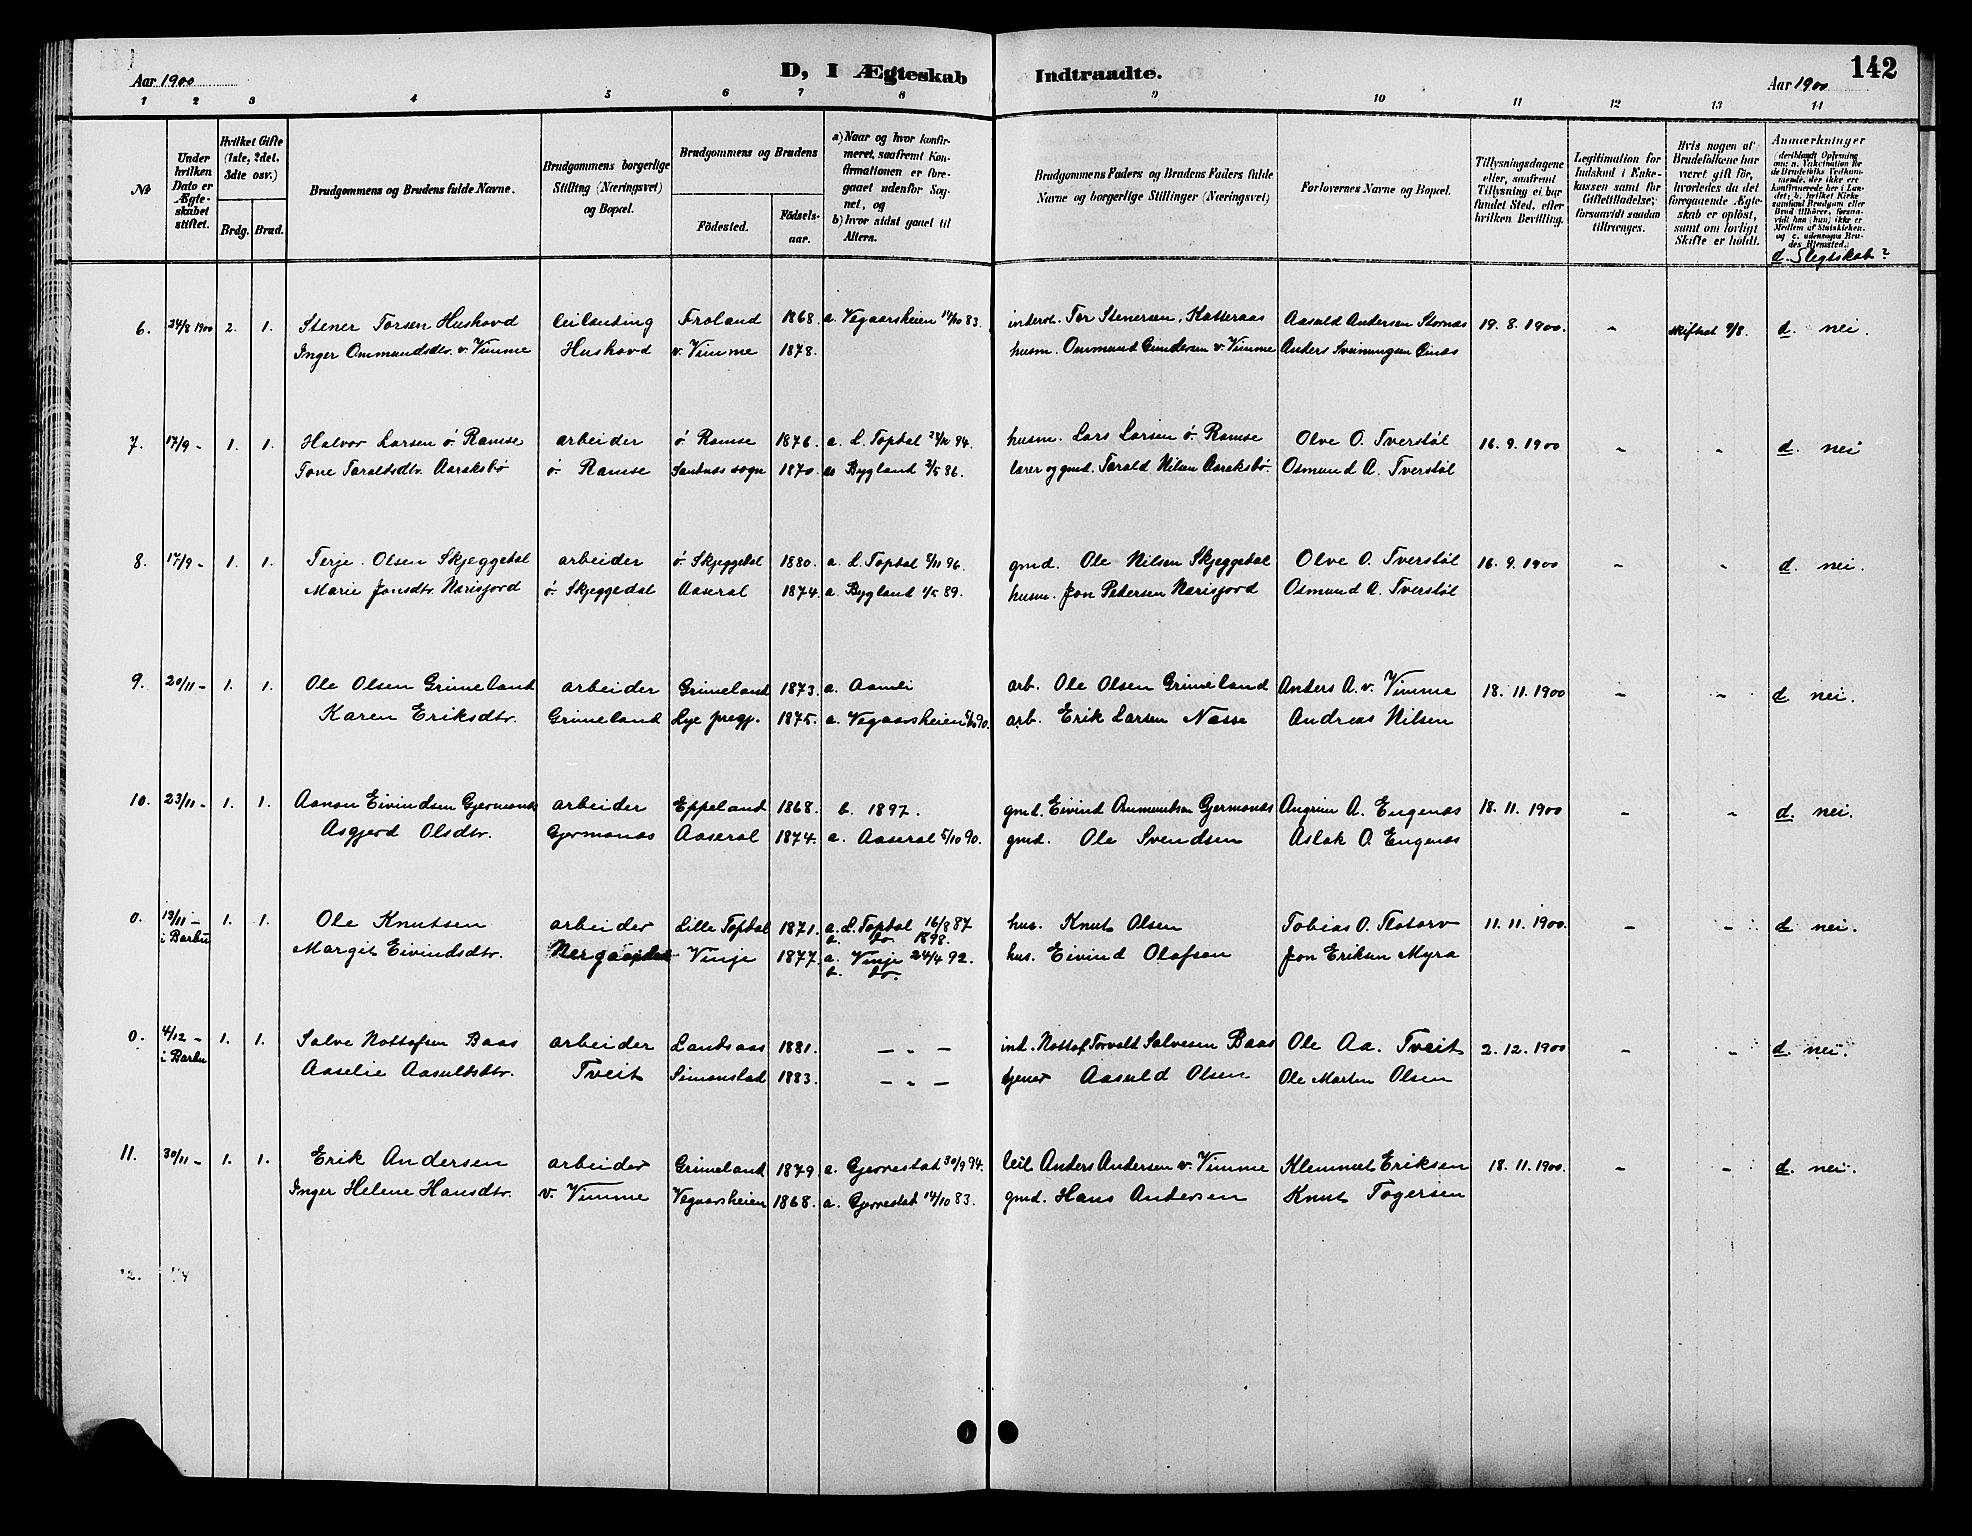 D, I Ægteskab Indtraadte.
142
Aar 1900
Aar 1900
1 2 3 4 5 6 7 8 9 10 11 12 13 14
№
Under hvilken Dato er Ægteskabet stiftet.
Hvilket Gifte (1ste, 2det, 3dte osv.)
Brdg. Brud.
Brudgommens og Brudens fulde Navne.
Brudgommens borgerlige Stilling (Næringsvei) og Bopæl.
Brudgommens og Brudens
Födested.
Födsels-aar.
a) Naar og hvor konfirmeret, saafremt Konfirmationen er foregaaet udenfor Sognet, og
b) hvor sidst gaaet til Alters.
Brudgommens Faders og Brudens Faders fulde Navne og borgerlige Stillinger (Næringsvei)
Forlovernes Navne og Bopæl.
Tillysningsdagene eller, saafremt Tillysning ei har fundet Sted, efter hvilken Bevilling.
Legitimation for Indskud i Enkekassen samt for Giftetilladelse, forsaavidt saadan tiltrænges.
Hvis nogen af Brudefolkene har været gift för, hvorledes da det foregaaende Ægteskab er oplöst, samt om lovligt Skifte er holdt.
Anmærkninger (deriblandt Oplysning om: a. Vakcination for de Brudefolks Vedkommende, der ikke ere konfirmerede her i Landet; b. hvilket Kirkesamfund Brudgum eller Brud tilhörer, forsaavidt han (hun) ikke er Medlem af Statskirken, og c. udensogns Brudes Hjemsted.)
d. Slegtskab?
6. 24/8 1900 2. 1. Stener Torsen Hushovd leilending Froland 1868. a. Vegaarsheien 14/10 83. inderst. Tor Stenersen, Katteraas Aasuld Andersen Stornæs 19. 8. 1900. - skiftet 9/8. d. nei.
Inger Ommundsdtr. v. Vimme Hushovd v. Vimme 1878. husm. Ommund Gundersen v. Vimme Anders Sveinungsen
7. 17/9 - 1. 1. Halvor Larsen ö. Ramse arbeider ö. Ramse 1876. a. L. Topdal 94. husm. Lars Larsen ö. Ramse Olve O. Tverstöl 16. 9. 1900 - - d. nei
Tone Taraldsdtr. Aaraksbö ö. Ramse Santnæs sogn 1870. a. Bygland 2/5 86. lærer og gmd. Tarald Nilsen Aaraksbö. Osmund A. Tverstöl
8. 17/9 - 1. 1. Terje Olsen Skjeggedal arbeider ö. Skjeggedal 1880. a. L. Topdal 8/11 96. gmd. Ole Nilsen Skjeggedal Olve O. Tverstöl 16. 9. 1900 - - d. nei.
Marie Jonsdtr. Nærisjord ö. Skjeggedal Aaseral 1874. a. Bygland 1/5 89. husm. Jon Pedersen Nærisjord Osmund A. Tverstöl
9. 20/11 - 1. 1. Ole Olsen Grimeland arbeider Grimeland 1873. a. Aamli arb. Ole Olsen Grimeland Anders A. v. Vimme 18. 11. 1900 - - d. nei.
Karen Eriksdtr. Grimeland Lye prgj. 1875. a. Vegaarsheien 90. arb. Erik Larsen Næsse Andreas Nilsen
10. 23/11 - 1. 1. Aanon Eivindsen Gjermonds arbeider Eppeland 1868. b. 1897. gmd. Eivind Anmundsen Gjermonæs Angrim A. Engenæs 18. 11. 1900 - - d. nei.
Asgjerd Olsdtr. Gjermonæs Aaseral 1874. a. Aaseral 5/10 90. gmd. Ole Svendsen Aslak O. Engenæs
0. 13/11 - i Barbu 1. 1. Ole Knutsen arbeider Lille Topdal 1871. a. L. Topdal 16/8 87 b. do. 1898. hus. Knut Olsen Tobias O. Flatarv 11. 11. 1900. - - d. nei.
Margit Eivindsdtr. Vinje 1877. a. Vinje 24/4 92. b. do. hus. Eivind Olafsen Jon Eriksen Myra
0. 4/12 - i Barbu 1. 1. Salve Nottofsen Baas arbeider Landsaas 1881. - " - ind. Nottof Torvald Salvesen Baas Ole Aa. Tveit 2. 12. 1900 - - d. nei.
Aaselie Aasuldsdtr. Tveit Simonstad 1883. - " - tjener Aasuld Olsen Ole Martin Olsen
11. 30/11 - 1. 1. Erik Andersen arbeider Grimeland 1879. a. Gjerrestad 30/9 94. leil. Anders Andersen v. Vimme Klemmet Eriksen 18. 11. 1900. - - d. nei.
Inger Helene Hansdtr. v. Vimme Vegaarsheien 1868. a. Gjerrestad 14/10 83. gmd. Hans Andersen Knut Togersen